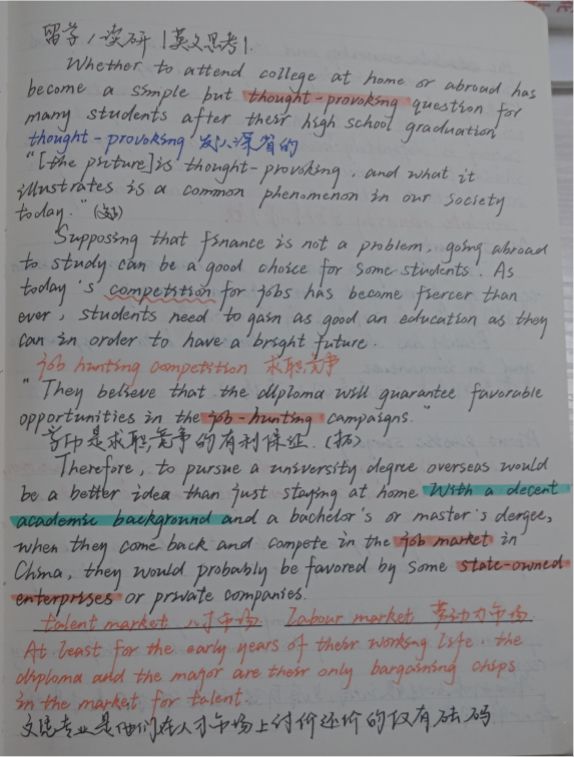 留学/读研 |英文思考|.
Whether to attend college at home or abroad has
become a simple but thought-provoking question for
many students after their high school graduation
thought-provoking 发人深省的
"[the picture] is thought-provoking, and what it
illustrates is a common phenomenon in our society
today."
Supposing that finance is not a problem, going abroad
to study can be a good choice for some students. As
today's competition for jobs has become fiercer than
ever, students need to gain as good an education as they
can in order to have a bright future.
job hunting competition 求职竞争
"They believe that the diploma will guarantee favorable
opportunities in the job-hunting campaigns."
学历是求职竞争的有利保证. (拓)
Therefore, to pursue a university degree overseas would
be a better idea than just staying at home With a decent
academic background and a bachelor's or master's dergee,
when they come back and compete in the job market in
China, they would probably be favored by some state-owned
enterprises or private companies.
talent market 人才市场 Labour market 劳动力市场
At least for the early years of their working life, the
diploma and the major are their only bargaining chips
in the market for talent.
文凭专业是他们在人才市场上讨价还价的仅有砝码